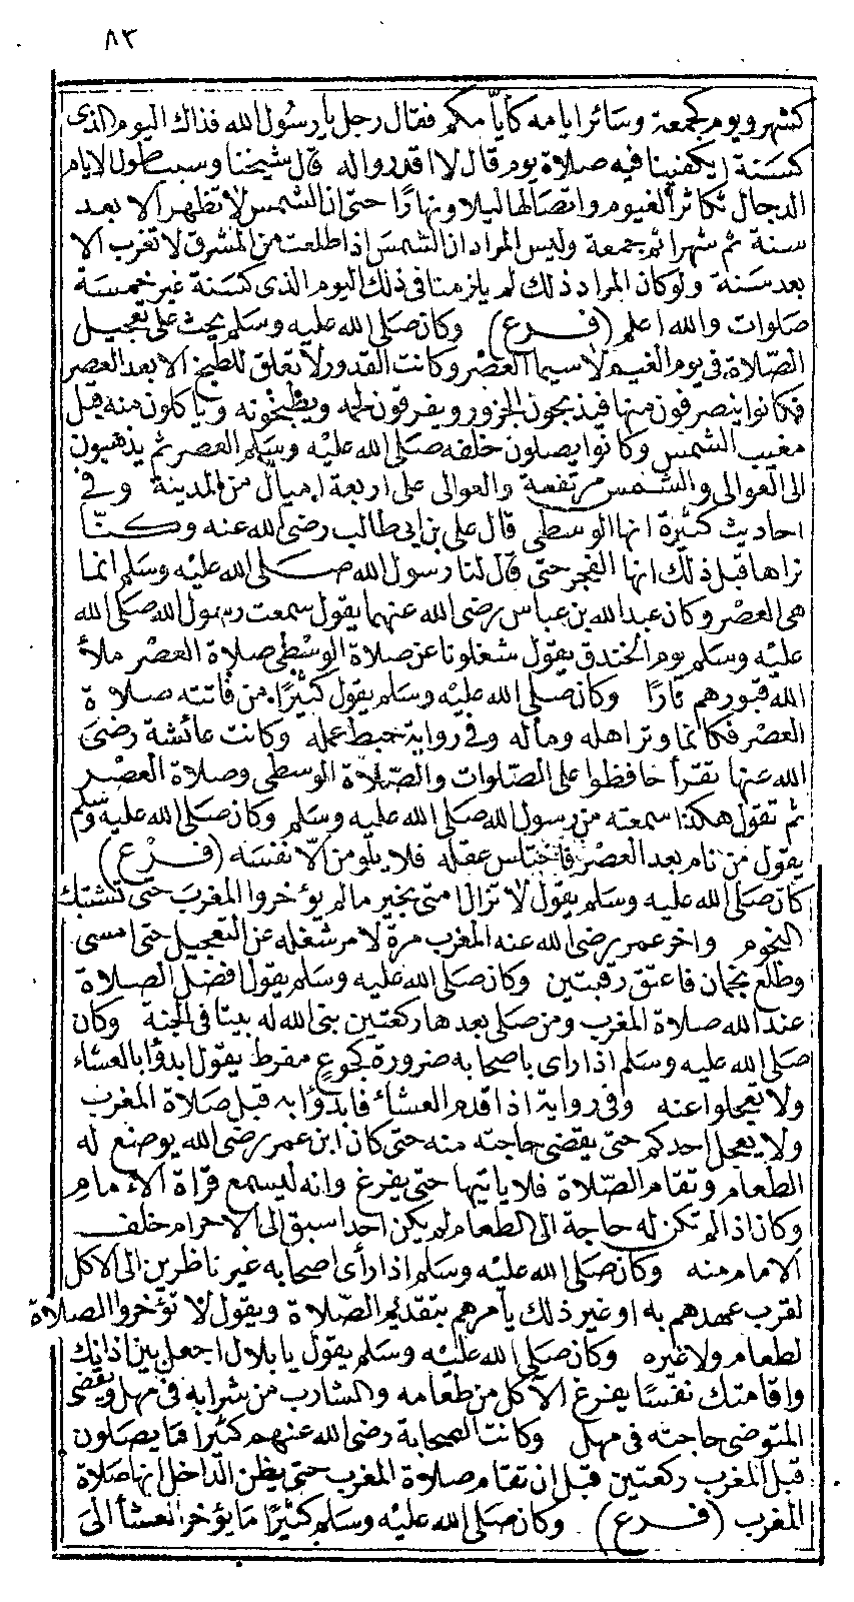 ٨٣
كشهر ويوم كجمعة وسائر ايامه كأيامكم فقال رجل يا رسول الله فذاك اليوم الذى
كسنة ايكفينا فيه صلاة يوم قال لا اقدروا له قال شيخنا وسبب طول الايام
الدجال تكاثر الغيوم واتصالها ليلا ونهارًا حتى ان الشمس لا تظهر الا بعد
سنة ثم شهر ثم جمعة وليس المراد ان الشمس اذا طلعت من المشرق لا تغرب الا
بعد سنة ولو كان المراد ذلك لم يلزمنا فى ذلك اليوم الذى كسنة غير خمسة
صلوات والله اعلم (فرع) وكان صلى الله عليه وسلم يحث على تعجيل
الصلاة فى يوم الغيم لا سيما العصر وكانت القدور لا تعلق للطبخ الا بعد العصر
فكانوا ينصرفون منها فيذبحون الجزور ويفرقون لحمه ويطبخونه وياكلون منه قبل
مغيب الشمس وكانوا يصلون خلفه صلى الله عليه وسلم العصر ثم يذهبون
الى العوالى والشمس مرتفعة والعوالى على اربعة اميال من المدينة وفى
احاديث كثيرة انها الوسطى قال على بن ابى طالب رضى الله عنه وكنّا
نراها قبل ذلك انها الفجر حتى قال لنا رسول الله صلى الله عليه وسلم انما
هى العصر وكان عبد الله بن عباس رضى الله عنهما يقول سمعت رسول الله صلى الله
عليه وسلم يوم الخندق يقول شغلونا عن صلاة الوسطى صلاة العصر ملأ
الله قبورهم نارًا وكان صلى الله عليه وسلم يقول كثيرًا من فاتته صلاة
العصر فكانما وتر اهله وماله وفى رواية حبط عمله وكانت عائشة رضى
الله عنها تقرأ حافظوا على الصلوات والصلاة الوسطى وصلاة العصر
ثم تقول هكذا سمعته من رسول الله صلى الله عليه وسلم وكان صلى الله عليه وسلم
يقول من نام بعد العصر فاختلس عقله فلا يلومن الّا نفسه (فرع)
كان صلى الله عليه وسلم يقول لا تزال امتى بخير مالم يؤخروا المغرب حتى تشتبك
النجوم واخر عمر رضى الله عنه المغرب مرة لامر شغله عن التعجيل حتى امسى
وطلع نجمان فاعتق رقبتين وكان صلى الله عليه وسلم يقول افضل الصلاة
عند الله صلاة المغرب ومن صلى بعدها ركعتين بنى الله له بيتا فى الجنة وكان
صلى الله عليه وسلم اذا راى باصحابه ضرورة كجوع مفرط يقول ابدؤا بالعشاء
ولا تعجلوا عنه وفى رواية اذا قدم العشاء فابدؤا به قبل صلاة المغرب
ولا يعجل احدكم حتى يقضى حاجته منه حتى كان ابن عمر رضى الله يوضع له
الطعام وتقام الصلاة فلا ياتيها حتى يفرغ وانه ليسمع قراة الامام
وكان اذا لم تكن له حاجة الى الطعام لم يكن احد اسبق الى الاحرام خلف
الامام منه وكان صلى الله عليه وسلم اذا رأى اصحابه غير ناظرين الى الاكل
لقرب عهدهم به او غير ذلك يأمرهم بتقديم الصلاة ويقول لا تؤخروا الصلاة
لطعام ولا غيره وكان صلى الله عليه وسلم يقول يا بلال اجعل بين اذانك
واقامتك نفسًا يفرغ الآكل من طعامه والشارب من شرابه فى مهل ويقضى
المتوضى حاجته فى مهل وكانت الصحابة رضى الله عنهم كثيرا ما يصلون
قبل المغرب ركعتين قبل ان تقام صلاة المغرب حتى يظن الداخل انها صلاة
المغرب (فرع) وكان صلى الله عليه وسلم كثيرًا ما يؤخر العشأ الى